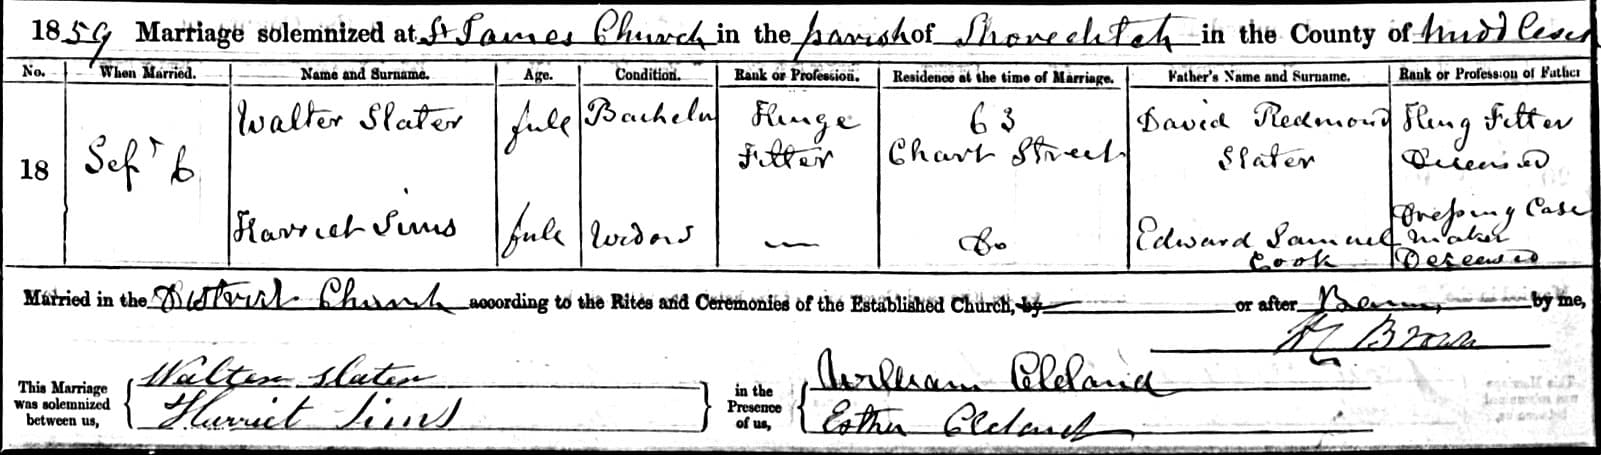 1859 Marriage solemnized at St James Church in the parish of Shoreditch in the County of Middlesex
No. When Married. Name and Surname. Age. Condition. Rank or Profession. Residence at the time of Marriage. Father's Name and Surname. Rank or Profession of Father
18 Sepr 6 Walter Slater full Bachelor Hinge Fitter 63 Chart Street David Redmond Slater Hing Fitter Deceased
Harriet Sims full Widow — Do Edward Samuel Cook Dressing Case Maker Deceased
Married in the District Church according to the Rites and Ceremonies of the Established Church, by or after Banns, by me,
Brown
This Marriage was solemnized between us,
Walter Slater
Harriet Sims
in the Presence of us,
William Cleland
Esther Cleland